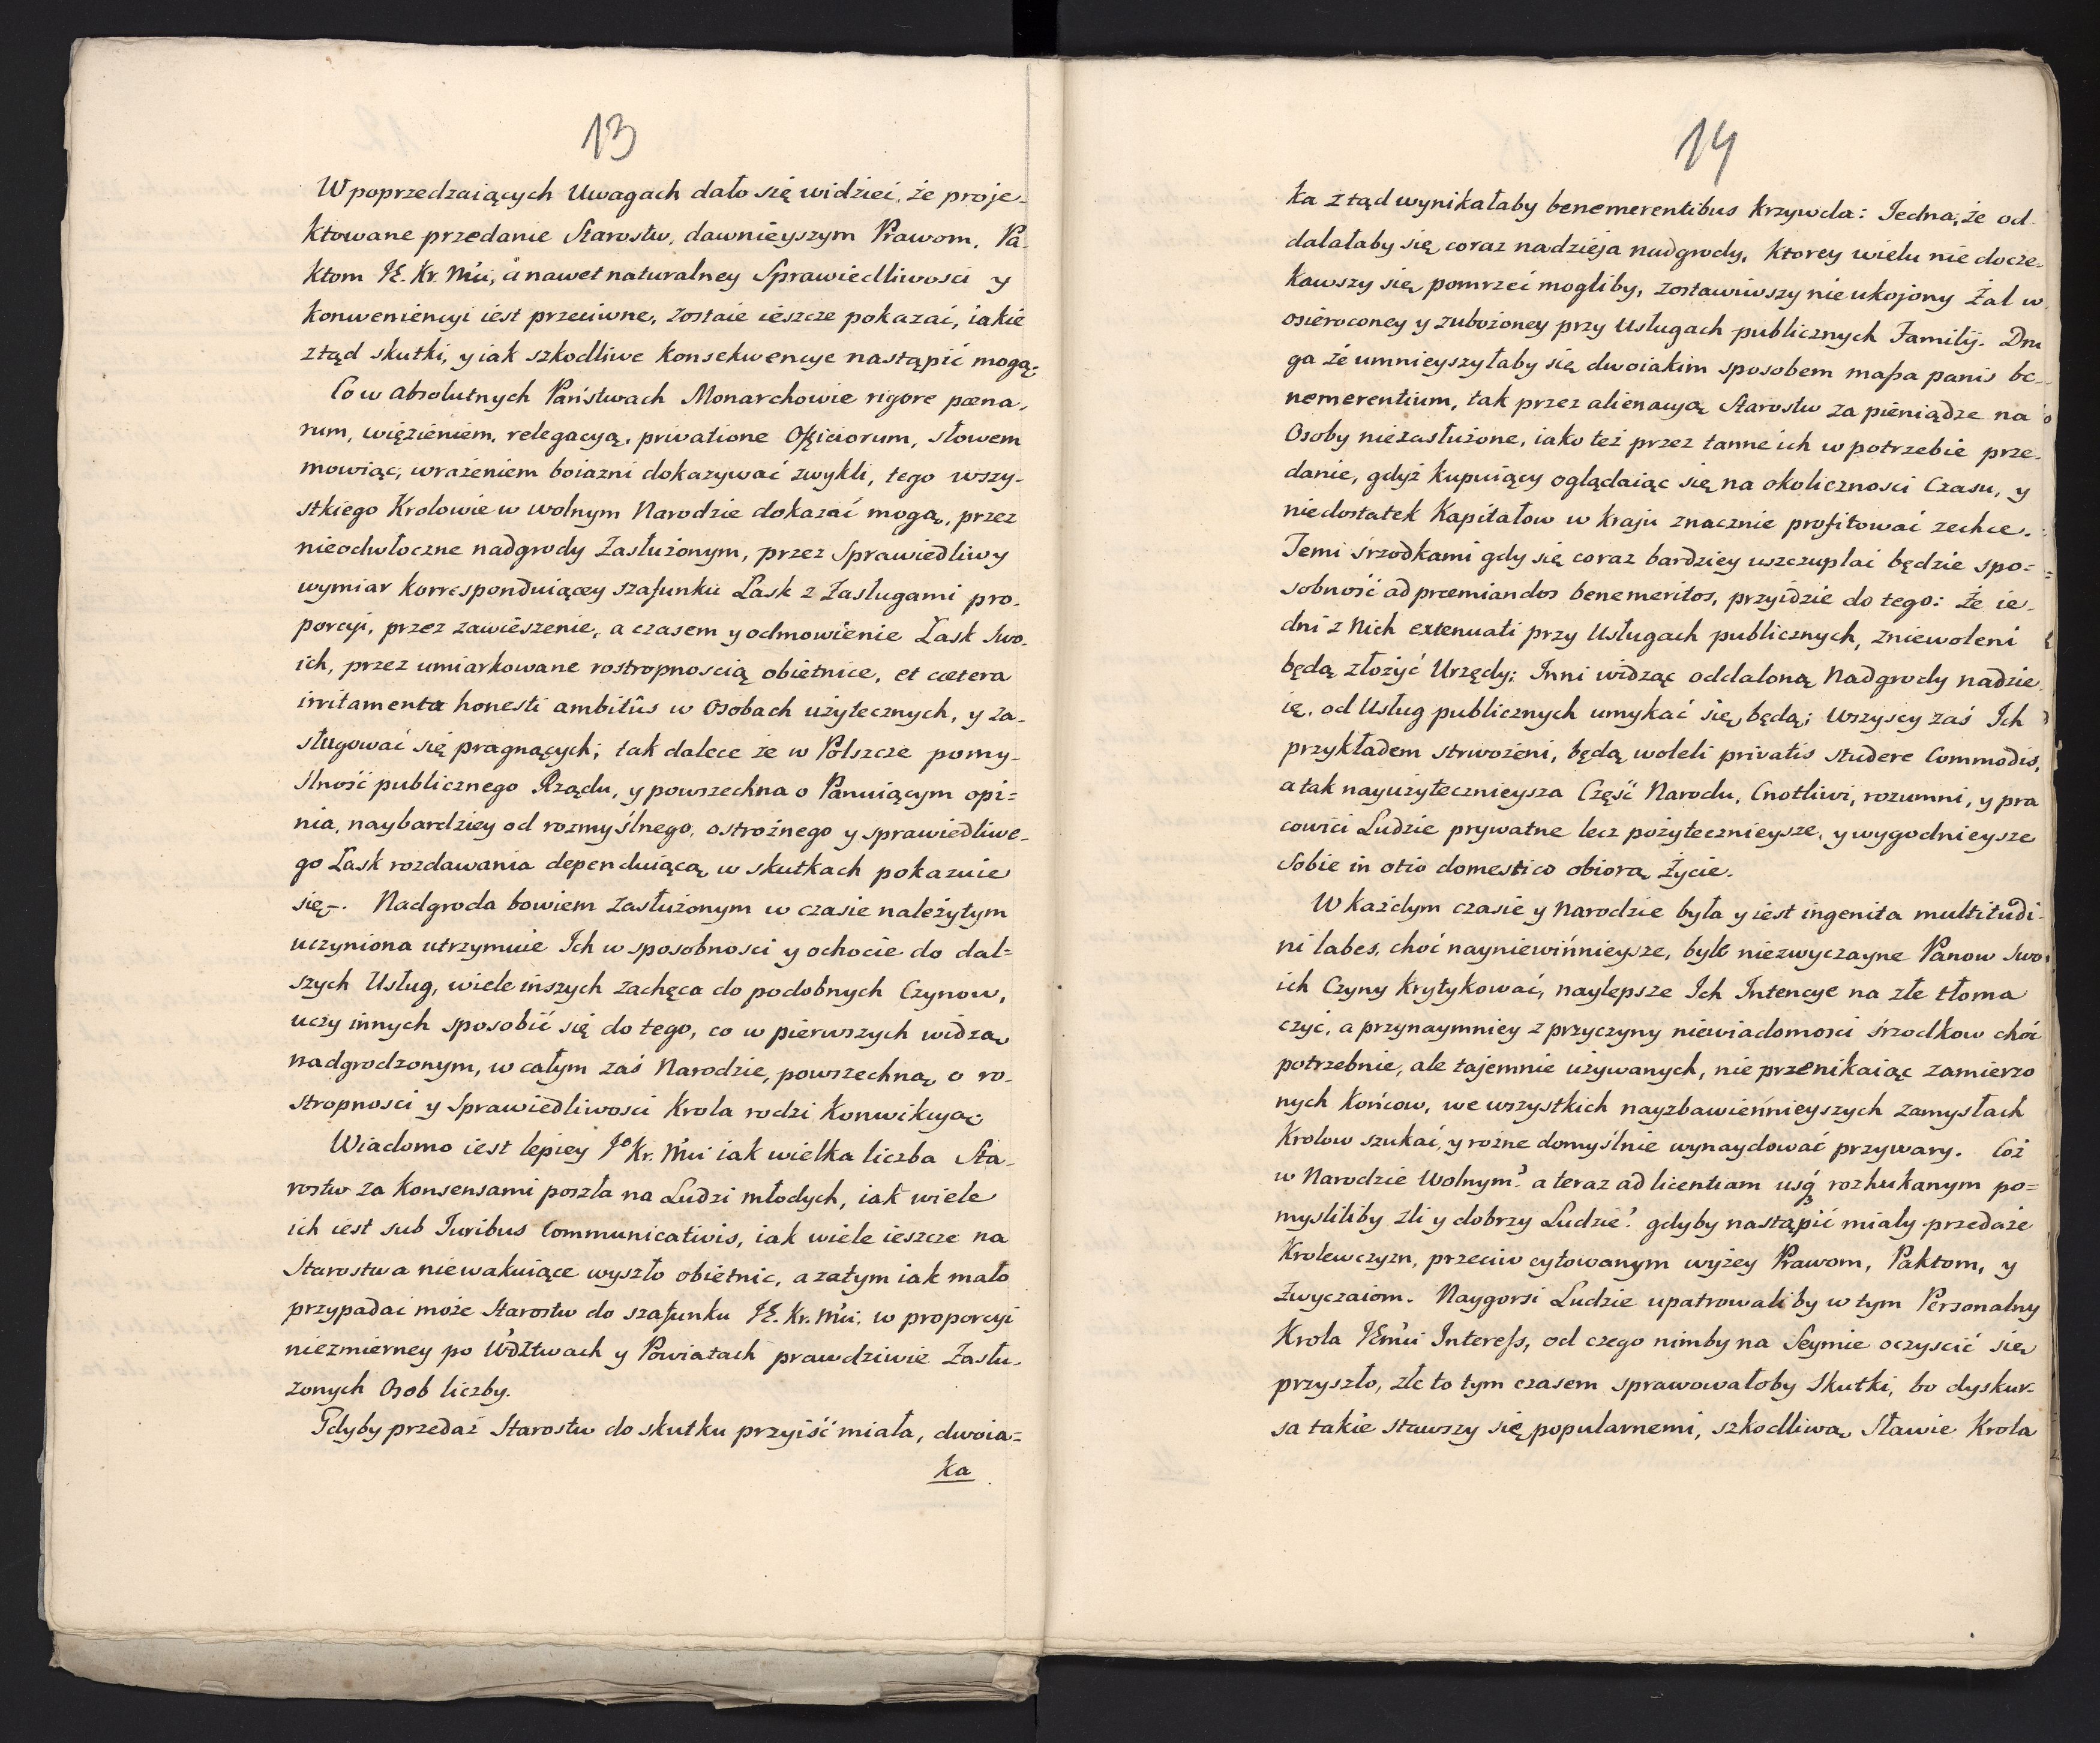 13
W poprzedzaiących Uwagach dało się widzieć, że proje-
ktowane przedanie Starostw, dawnieyszym Prawom, Pa-
ktom JE. Kr. Mći, a nawet naturalney Sprawiedliwosci y
konweniencyi iest przeciwne, zostaie ieszcze pokazać, iakie
ztąd skutki, y iak szkodliwe konsekwencye nastąpić mogą.
Co w absolutnych Państwach Monarchowie rigore pœna-
rum, więzieniem, relegacyą, privatione Officiorum, słowem
mowiąc, wrażeniem boiazni dokazywać zwykli, tego wszy-
stkiego Krolowie w wolnym Narodzie dokazać mogą, przez
nieodwłoczne nadgrody Zasłużonym, przez Sprawiedliwy
wymiar korresponduiącey szafunku Łask z Zasługami pro-
porcyi, przez zawieszenie, a czasem y odmowienie Łask Swo-
ich, przez umiarkowane rostropnoscią obietnice, et cætera
irritamenta honesti ambitûs w Osobach użytecznych, y za-
sługować się pragnących; tak dalece że w Polszcze pomy-
slność publicznego Rządu, y powszechna o Panuiącym opi=
nia, naybardziey od rozmyślnego, ostrożnego y sprawiedliwe-
go Łask rozdawania dependuiącą w skutkach pokazuie
się. Nadgroda bowiem zasłużonym w czasie należytym
uczyniona utrzymuie Ich w sposobnosci y ochocie do dal=
szych Usług, wiele inszych zachęca do podobnych Czynow,
uczy innych sposobić się do tego, co w pierwszych widzą
nadgrodzonym, w całym zaś Narodzie, powszechną o ro-
stropnosci y Sprawiedliwosci Krola rodzi Konwikcyą.
Wiadomo iest lepiey Jo Kr. Mći iak wielka liczba Sta-
rostw za Konsensami poszła na Ludzi młodych, iak wiele
ich iest sub Juribus Communicativis, iak wiele ieszcze na
Starostwa niewakuiące wyszło obietnic, a zatym iak mało
przypadać może Starostw do szafunku JE. Kr. Mći, w proporcyi
niezmierney po Wdztwach y Powiatach prawdziwie Zasłu-
żonych Osob liczby.
Gdyby przedaż Starostw do skutku przyiść miała, dwoia=
ka
14
ka ztąd wynikałaby benemerentibus krzywda: Jedna, że od-
dalałaby się coraz nadzieja nadgrody, ktorey wielu nie docze-
kawszy się pomrzeć mogliby, zostawiwszy nieukojony Żal w
osieroconey y zubożoney przy Usługach publicznych Familij. Dru
ga że umnieyszyłaby się dwoiakim sposobem massa panis be-
nemerentium, tak przez alienacyą Starostw za pieniądze na
Osoby niezasłużone, iako też przez tanne ich w potrzebie prze-
danie, gdyż kupuiący oglądaiąc się na okolicznosci Czasu, y
niedostatek Kapitałow w kraju znacznie profitować zechce.
Temi śrzodkami gdy się coraz bardziey uszczuplać będzie spo=
sobność ad præmiandos benemeritos, przyidzie do tego: że ie-
dni z Nich extenuati przy Usługach publicznych, zniewoleni
będą złożyć Urzędy; Inni widząc oddaloną Nadgrody nadzie-
ię, od Usług publicznych umykać się będą; Wszyscy zaś Ich
przykładem strwożeni, będą woleli privatis studere Commodis,
a tak nayużytecznieysza Część Narodu, Cnotliwi, rozumni, y pra
cowici Ludzie prywatne lecz pożytecznieysze, y wygodnieysze
sobie in otio domestico obiorą Życie.
W każdym czasie y Narodzie była y iest ingenita multitudi-
ni labes, choć nayniewińnieysze, byle niezwyczayne Panow Swo
ich Czyny krytykować, naylepsze Ich Intencye na złe tłoma
czyć, a przynaymniey z przyczyny niewiadomosci śrzodkow choć
potrzebnie, ale tajemnie używanych, nie przenikaiąc zamierzo
nych końcow, we wszystkich nayzbawieńnieyszych zamysłach
Krolow szukać, y rożne domyślnie wynaydować przywary. Coż
w Narodzie Wolnym? a teraz ad licentiam usq rozhukanym po=
mysliliby źli y dobrzy Ludzie? gdyby nastąpić miały przedaże
Krolewczyzn, przeciw cytowanym wyżey Prawom, Paktom, y
Zwyczaiom. Naygorsi Ludzie upatrowaliby w tym Personalny
Krola JEmći Interess, od czego nimby na Seymie oczyscić się
przyszło, złe to tym czasem sprawowałoby skutki, bo dyskur-
sa takie stawszy się popularnemi, szkodliwą Sławie Krola